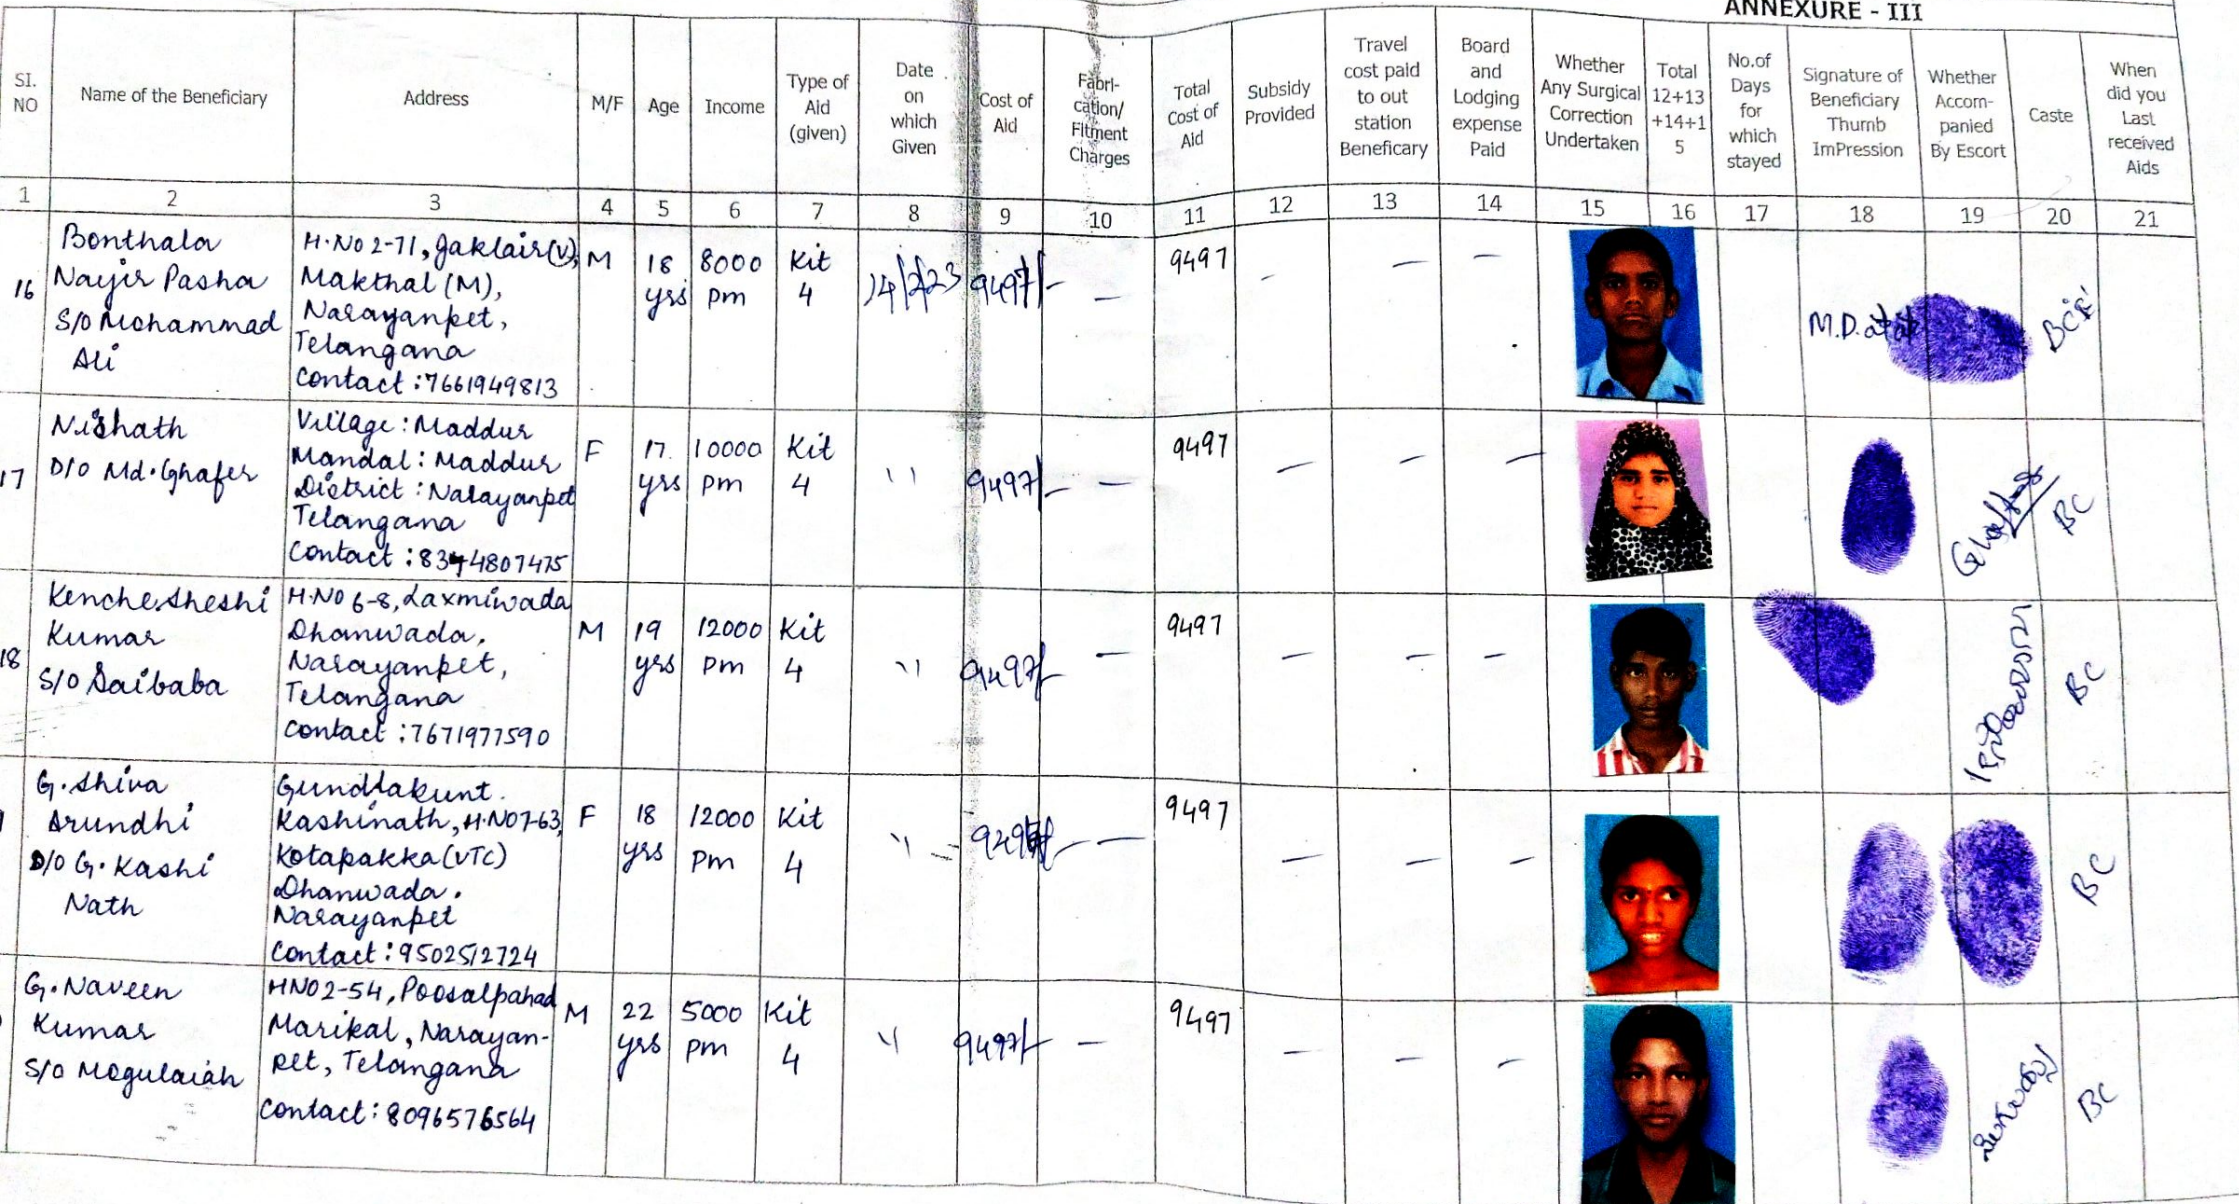 ANNEXURE - III
SI.
NO
Name of the Beneficiary
Address
M/F
Age
Income
Type of
Aid
(given)
Date
on
which
Given
Cost of
Aid
Fabri-
cation/
Fitment
Charges
Total
Cost of
Aid
Subsidy
Provided
Travel
cost paid
to out
station
Beneficary
Board
and
Lodging
expense
Paid
Whether
Any Surgical
Correction
Undertaken
Total
12+13
+14+1
5
No.of
Days
for
which
stayed
Signature of
Beneficiary
Thumb
ImPression
Whether
Accom-
panied
By Escort
Caste
When
did you
Last
received
Aids
1 2 3 4 5 6 7 8 9 10 11 12 13 14 15 16 17 18 19 20 21
16
Bonthala
Nayir Pasha
S/o Mohammad
Ali
H.No 2-71, Jaklair(V),
Makthal (M),
Narayanpet,
Telangana
Contact : 7661949813
M
18
yrs
8000
pm
Kit
4
14/2/23
9497/-
—
9497
-
—
—
M.D.
17
Nishath
D/o Md. Ghafer
Village : Maddur
Mandal : Maddur
District : Narayanpet
Telangana
Contact : 8374807475
F
17
yrs
10000
pm
Kit
4
''
9497/-
—
9497
—
—
—
BC
18
Kenche Sheshi
Kumar
S/o Saibaba
H.No 6-8, Laxmiwada
Dhanwada,
Narayanpet,
Telangana
Contact : 7671977590
M
19
yrs
12000
pm
Kit
4
''
9497/-
—
9497
—
—
—
BC
G. Shiva
Arundhi
D/o G. Kashi
Nath
Gundlakunt.
Kashinath, H.No 7-63,
Kotapakka (VTC)
Dhanwada.
Narayanpet
Contact : 9502512724
F
18
yrs
12000
Pm
Kit
4
''
—
9497
—
—
—
BC
G. Naveen
Kumar
S/o Mogulaiah
HNO 2-54, Poosalpahad
Marikal, Narayan-
pet, Telangana
Contact : 8096576564
M
22
yrs
5000
pm
Kit
4
''
9497/-
—
9497
—
—
—
BC